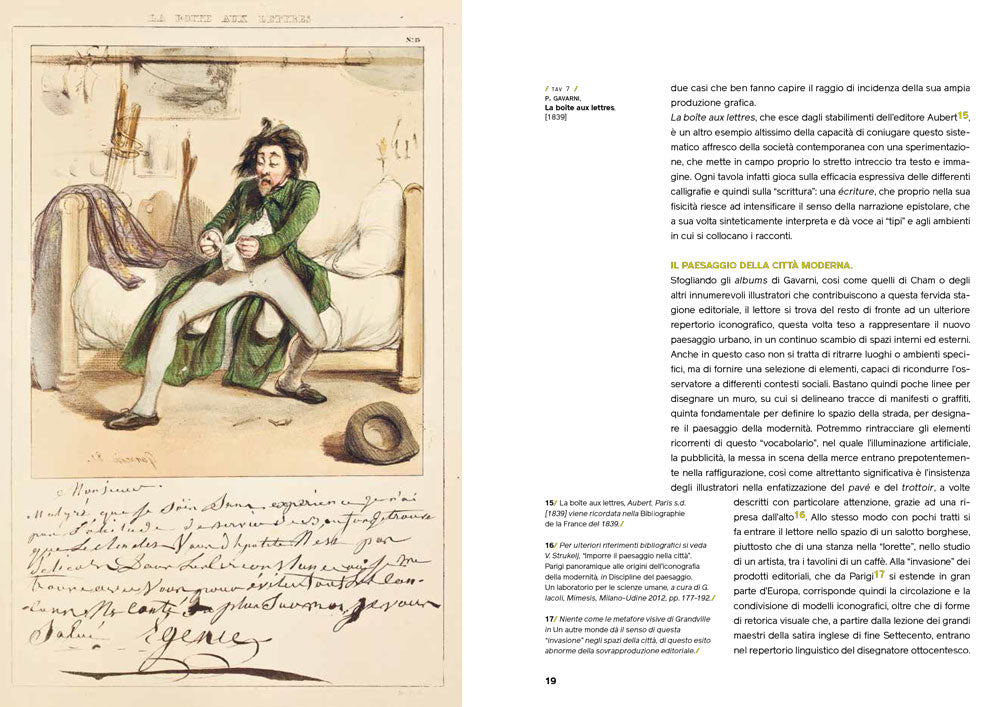 LA BOITE AUX LETTRES
N.º 15
Monsieur
Malgré que je sois sans expérience je n'ai
pas l'abitude
Salue Egenie
/ TAV 7 /
P. GAVARNI,
La boîte aux lettres,
[1839]
due casi che ben fanno capire il raggio di incidenza della sua ampia
produzione grafica.
La boîte aux lettres, che esce dagli stabilimenti dell'editore Aubert15,
è un altro esempio altissimo della capacità di coniugare questo siste-
matico affresco della società contemporanea con una sperimentazio-
ne, che mette in campo proprio lo stretto intreccio tra testo e imma-
gine. Ogni tavola infatti gioca sulla efficacia espressiva delle differenti
calligrafie e quindi sulla "scrittura": una écriture, che proprio nella sua
fisicità riesce ad intensificare il senso della narrazione epistolare, che
a sua volta sinteticamente interpreta e dà voce ai "tipi" e agli ambienti
in cui si collocano i racconti.
IL PAESAGGIO DELLA CITTÀ MODERNA.
Sfogliando gli albums di Gavarni, così come quelli di Cham o degli
altri innumerevoli illustratori che contribuiscono a questa fervida sta-
gione editoriale, il lettore si trova del resto di fronte ad un ulteriore
repertorio iconografico, questa volta teso a rappresentare il nuovo
paesaggio urbano, in un continuo scambio di spazi interni ed esterni.
Anche in questo caso non si tratta di ritrarre luoghi o ambienti speci-
fici, ma di fornire una selezione di elementi, capaci di ricondurre l'os-
servatore a differenti contesti sociali. Bastano quindi poche linee per
disegnare un muro, su cui si delineano tracce di manifesti o graffiti,
quinta fondamentale per definire lo spazio della strada, per designa-
re il paesaggio della modernità. Potremmo rintracciare gli elementi
ricorrenti di questo "vocabolario", nel quale l'illuminazione artificiale,
la pubblicità, la messa in scena della merce entrano prepotentemen-
te nella raffigurazione, così come altrettanto significativa è l'insistenza
degli illustratori nella enfatizzazione del pavé e del trottoir, a volte
descritti con particolare attenzione, grazie ad una ri-
presa dall'alto16. Allo stesso modo con pochi tratti si
fa entrare il lettore nello spazio di un salotto borghese,
piuttosto che di una stanza nella "lorette", nello studio
di un artista, tra i tavolini di un caffè. Alla "invasione" dei
prodotti editoriali, che da Parigi17 si estende in gran
parte d'Europa, corrisponde quindi la circolazione e la
condivisione di modelli iconografici, oltre che di forme
di retorica visuale che, a partire dalla lezione dei grandi
maestri della satira inglese di fine Settecento, entrano
nel repertorio linguistico del disegnatore ottocentesco.
15/ La boîte aux lettres, Aubert, Paris s.d.
[1839] viene ricordata nella Bibliographie
de la France del 1839./
16/ Per ulteriori riferimenti bibliografici si veda
V. Strukelj, "Imporre il paesaggio nella città".
Parigi panoramique alle origini dell'iconografia
della modernità, in Discipline del paesaggio.
Un laboratorio per le scienze umane, a cura di G.
Iacoli, Mimesis, Milano-Udine 2012, pp. 177-192./
17/ Niente come le metafore visive di Grandville
in Un autre monde dà il senso di questa
"invasione" negli spazi della città, di questo esito
abnorme della sovrapproduzione editoriale./
19